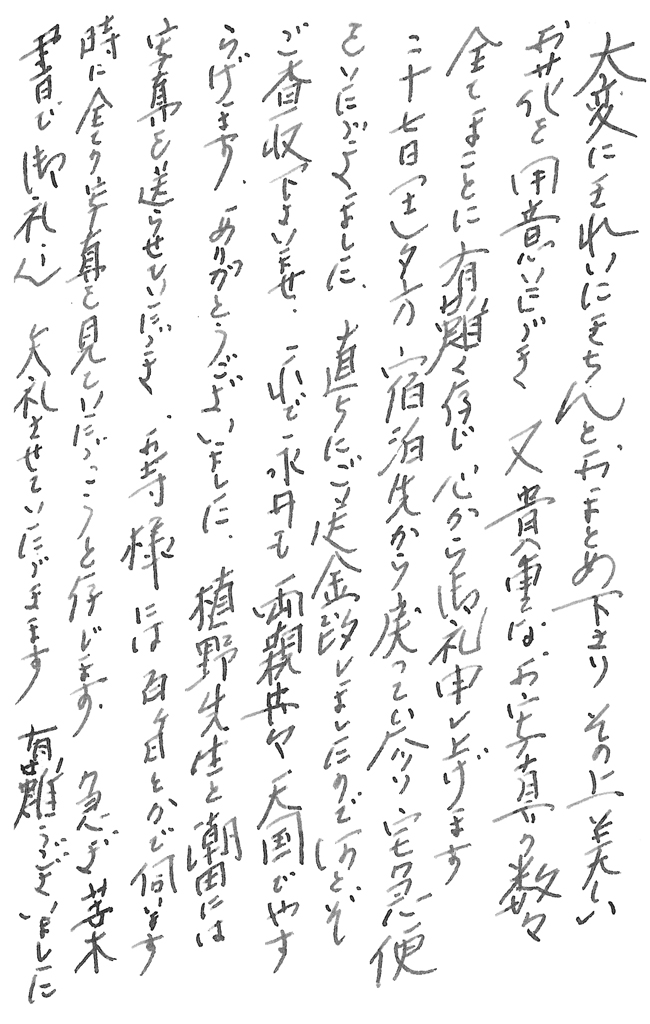 大変にきれいにきちんとおまとめ下さり その上 美しい
お花を用意いただき 又 貴重なお写真の数々
全てまことに有難く存じ 心から御礼申し上げます
二十七日 夕方 宿泊先から戻って参り 宅急便
をいただきました、直ちにご送金致しましたので何とぞ
ご査収下さいませ、これで永井も両親共々 天国でやす
らげます、ありがとうございました、植野先生と潮田には
写真を送らせていただき、お寺様には百ヶ日とかで伺います
時に全ての写真を見ていただこうと存じます、急ぎ 乱
書にて御礼まで 失礼させていただきます 有難うございました